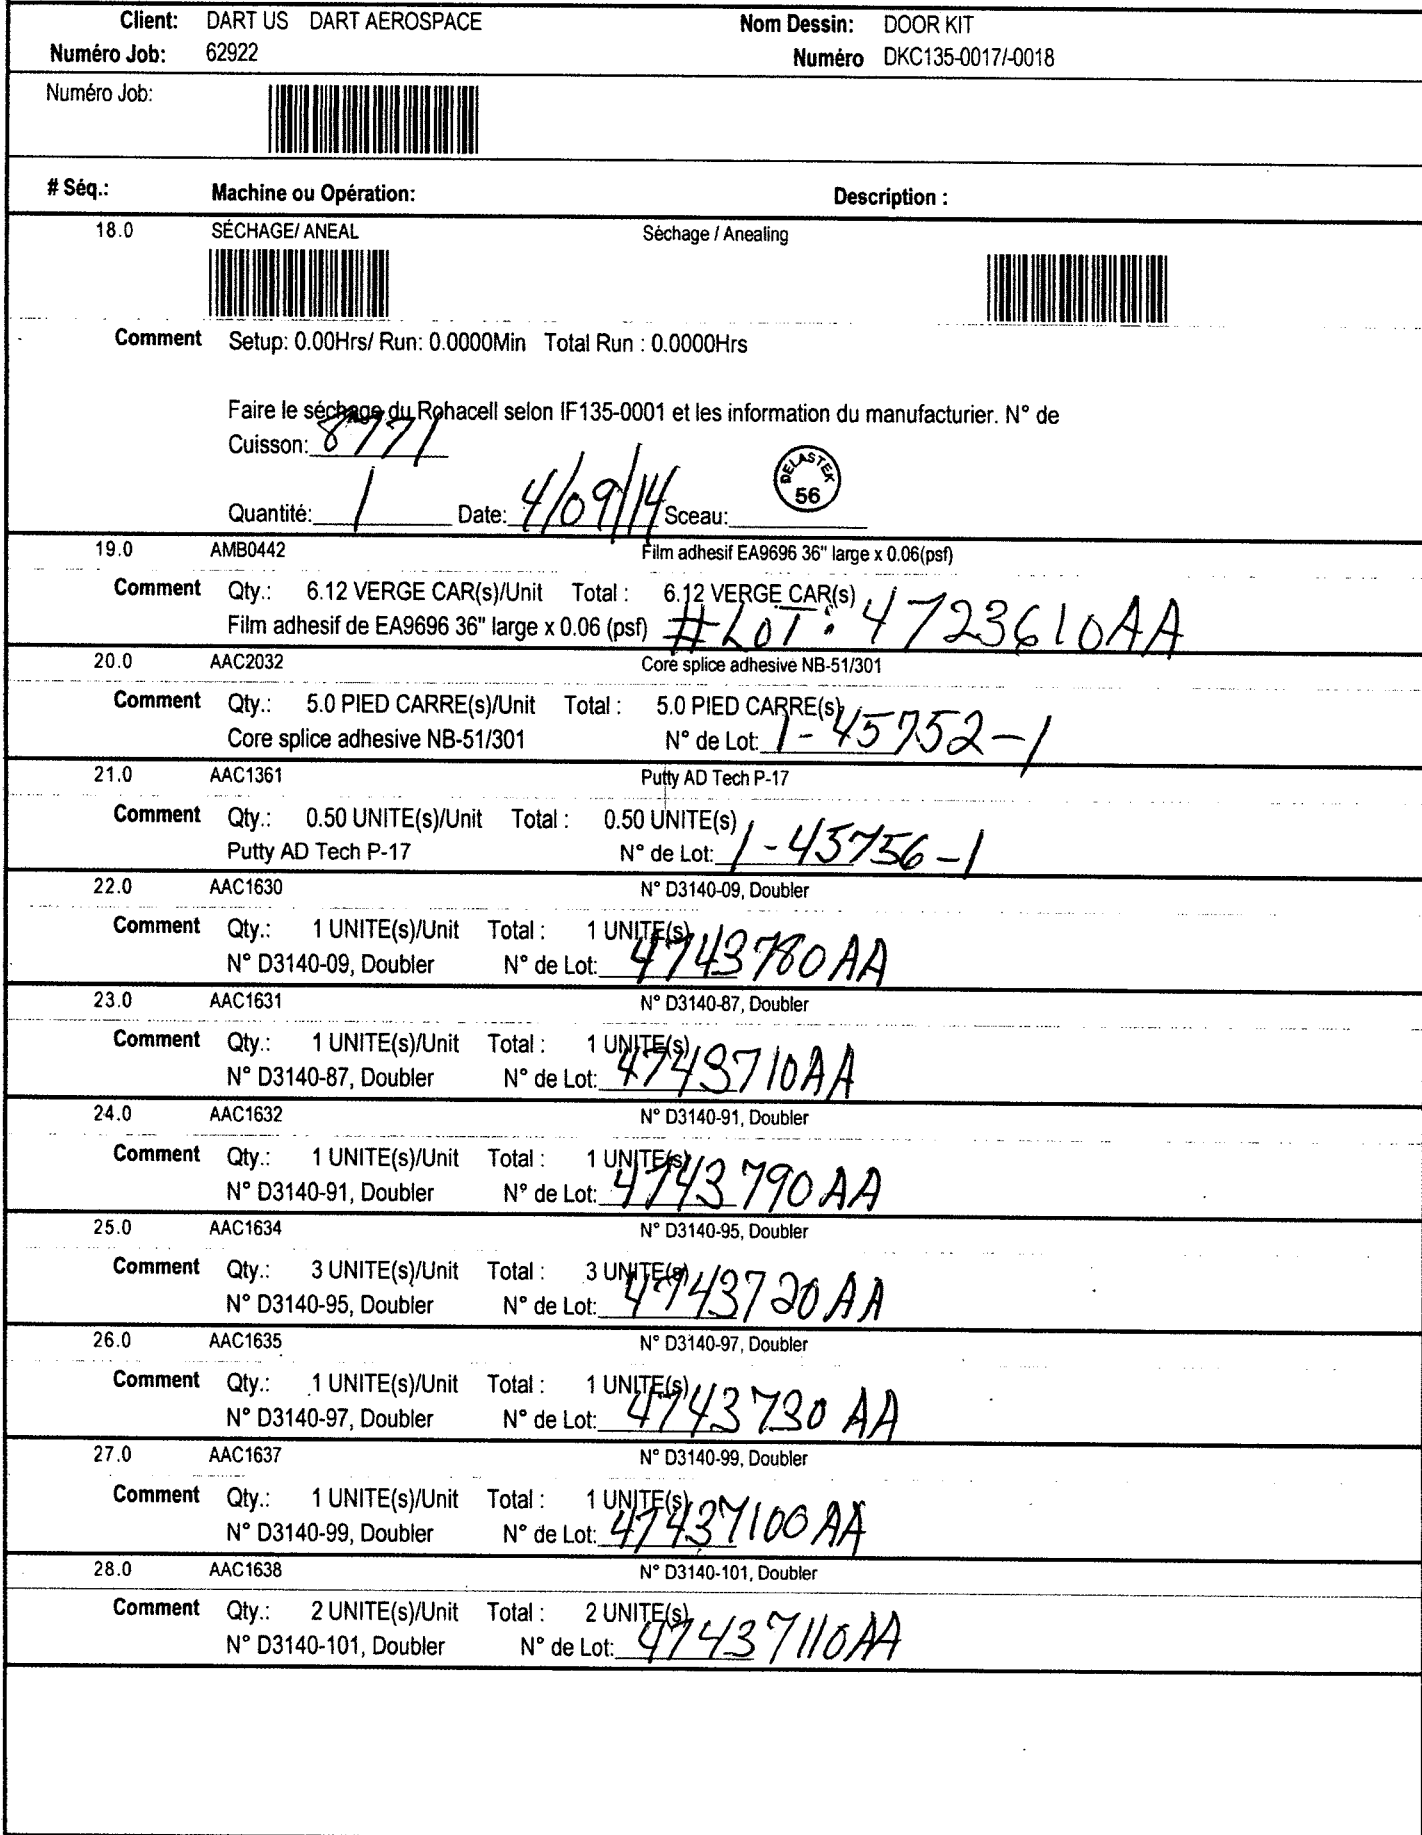 Client: DART US DART AEROSPACE Nom Dessin: DOOR KIT
Numéro Job: 62922 Numéro DKC135-0017/-0018
Numéro Job:
# Séq.: Machine ou Opération: Description :
18.0 SÉCHAGE/ ANEAL Séchage / Anealing
Comment Setup: 0.00Hrs/ Run: 0.0000Min Total Run : 0.0000Hrs
Faire le séchage du Rohacell selon IF135-0001 et les information du manufacturier. N° de
Cuisson: 8771
DELASTEK
56
Quantité: 1 Date: 4/09/14 Sceau:
19.0 AMB0442 Film adhesif EA9696 36" large x 0.06(psf)
Comment Qty.: 6.12 VERGE CAR(s)/Unit Total : 6.12 VERGE CAR(s)
Film adhesif de EA9696 36" large x 0.06 (psf) #LOT: 4723610AA
20.0 AAC2032 Core splice adhesive NB-51/301
Comment Qty.: 5.0 PIED CARRE(s)/Unit Total : 5.0 PIED CARRE(s)
Core splice adhesive NB-51/301 N° de Lot: 1-45752-1
21.0 AAC1361 Putty AD Tech P-17
Comment Qty.: 0.50 UNITE(s)/Unit Total : 0.50 UNITE(s)
Putty AD Tech P-17 N° de Lot: 1-45756-1
22.0 AAC1630 N° D3140-09, Doubler
Comment Qty.: 1 UNITE(s)/Unit Total : 1 UNITE(s)
N° D3140-09, Doubler N° de Lot: 4743780AA
23.0 AAC1631 N° D3140-87, Doubler
Comment Qty.: 1 UNITE(s)/Unit Total : 1 UNITE(s)
N° D3140-87, Doubler N° de Lot: 4743710AA
24.0 AAC1632 N° D3140-91, Doubler
Comment Qty.: 1 UNITE(s)/Unit Total : 1 UNITE(s)
N° D3140-91, Doubler N° de Lot: 4743790AA
25.0 AAC1634 N° D3140-95, Doubler
Comment Qty.: 3 UNITE(s)/Unit Total : 3 UNITE(s)
N° D3140-95, Doubler N° de Lot: 4743720AA
26.0 AAC1635 N° D3140-97, Doubler
Comment Qty.: 1 UNITE(s)/Unit Total : 1 UNITE(s)
N° D3140-97, Doubler N° de Lot: 4743730 AA
27.0 AAC1637 N° D3140-99, Doubler
Comment Qty.: 1 UNITE(s)/Unit Total : 1 UNITE(s)
N° D3140-99, Doubler N° de Lot: 47437100 AA
28.0 AAC1638 N° D3140-101, Doubler
Comment Qty.: 2 UNITE(s)/Unit Total : 2 UNITE(s)
N° D3140-101, Doubler N° de Lot: 47437110AA